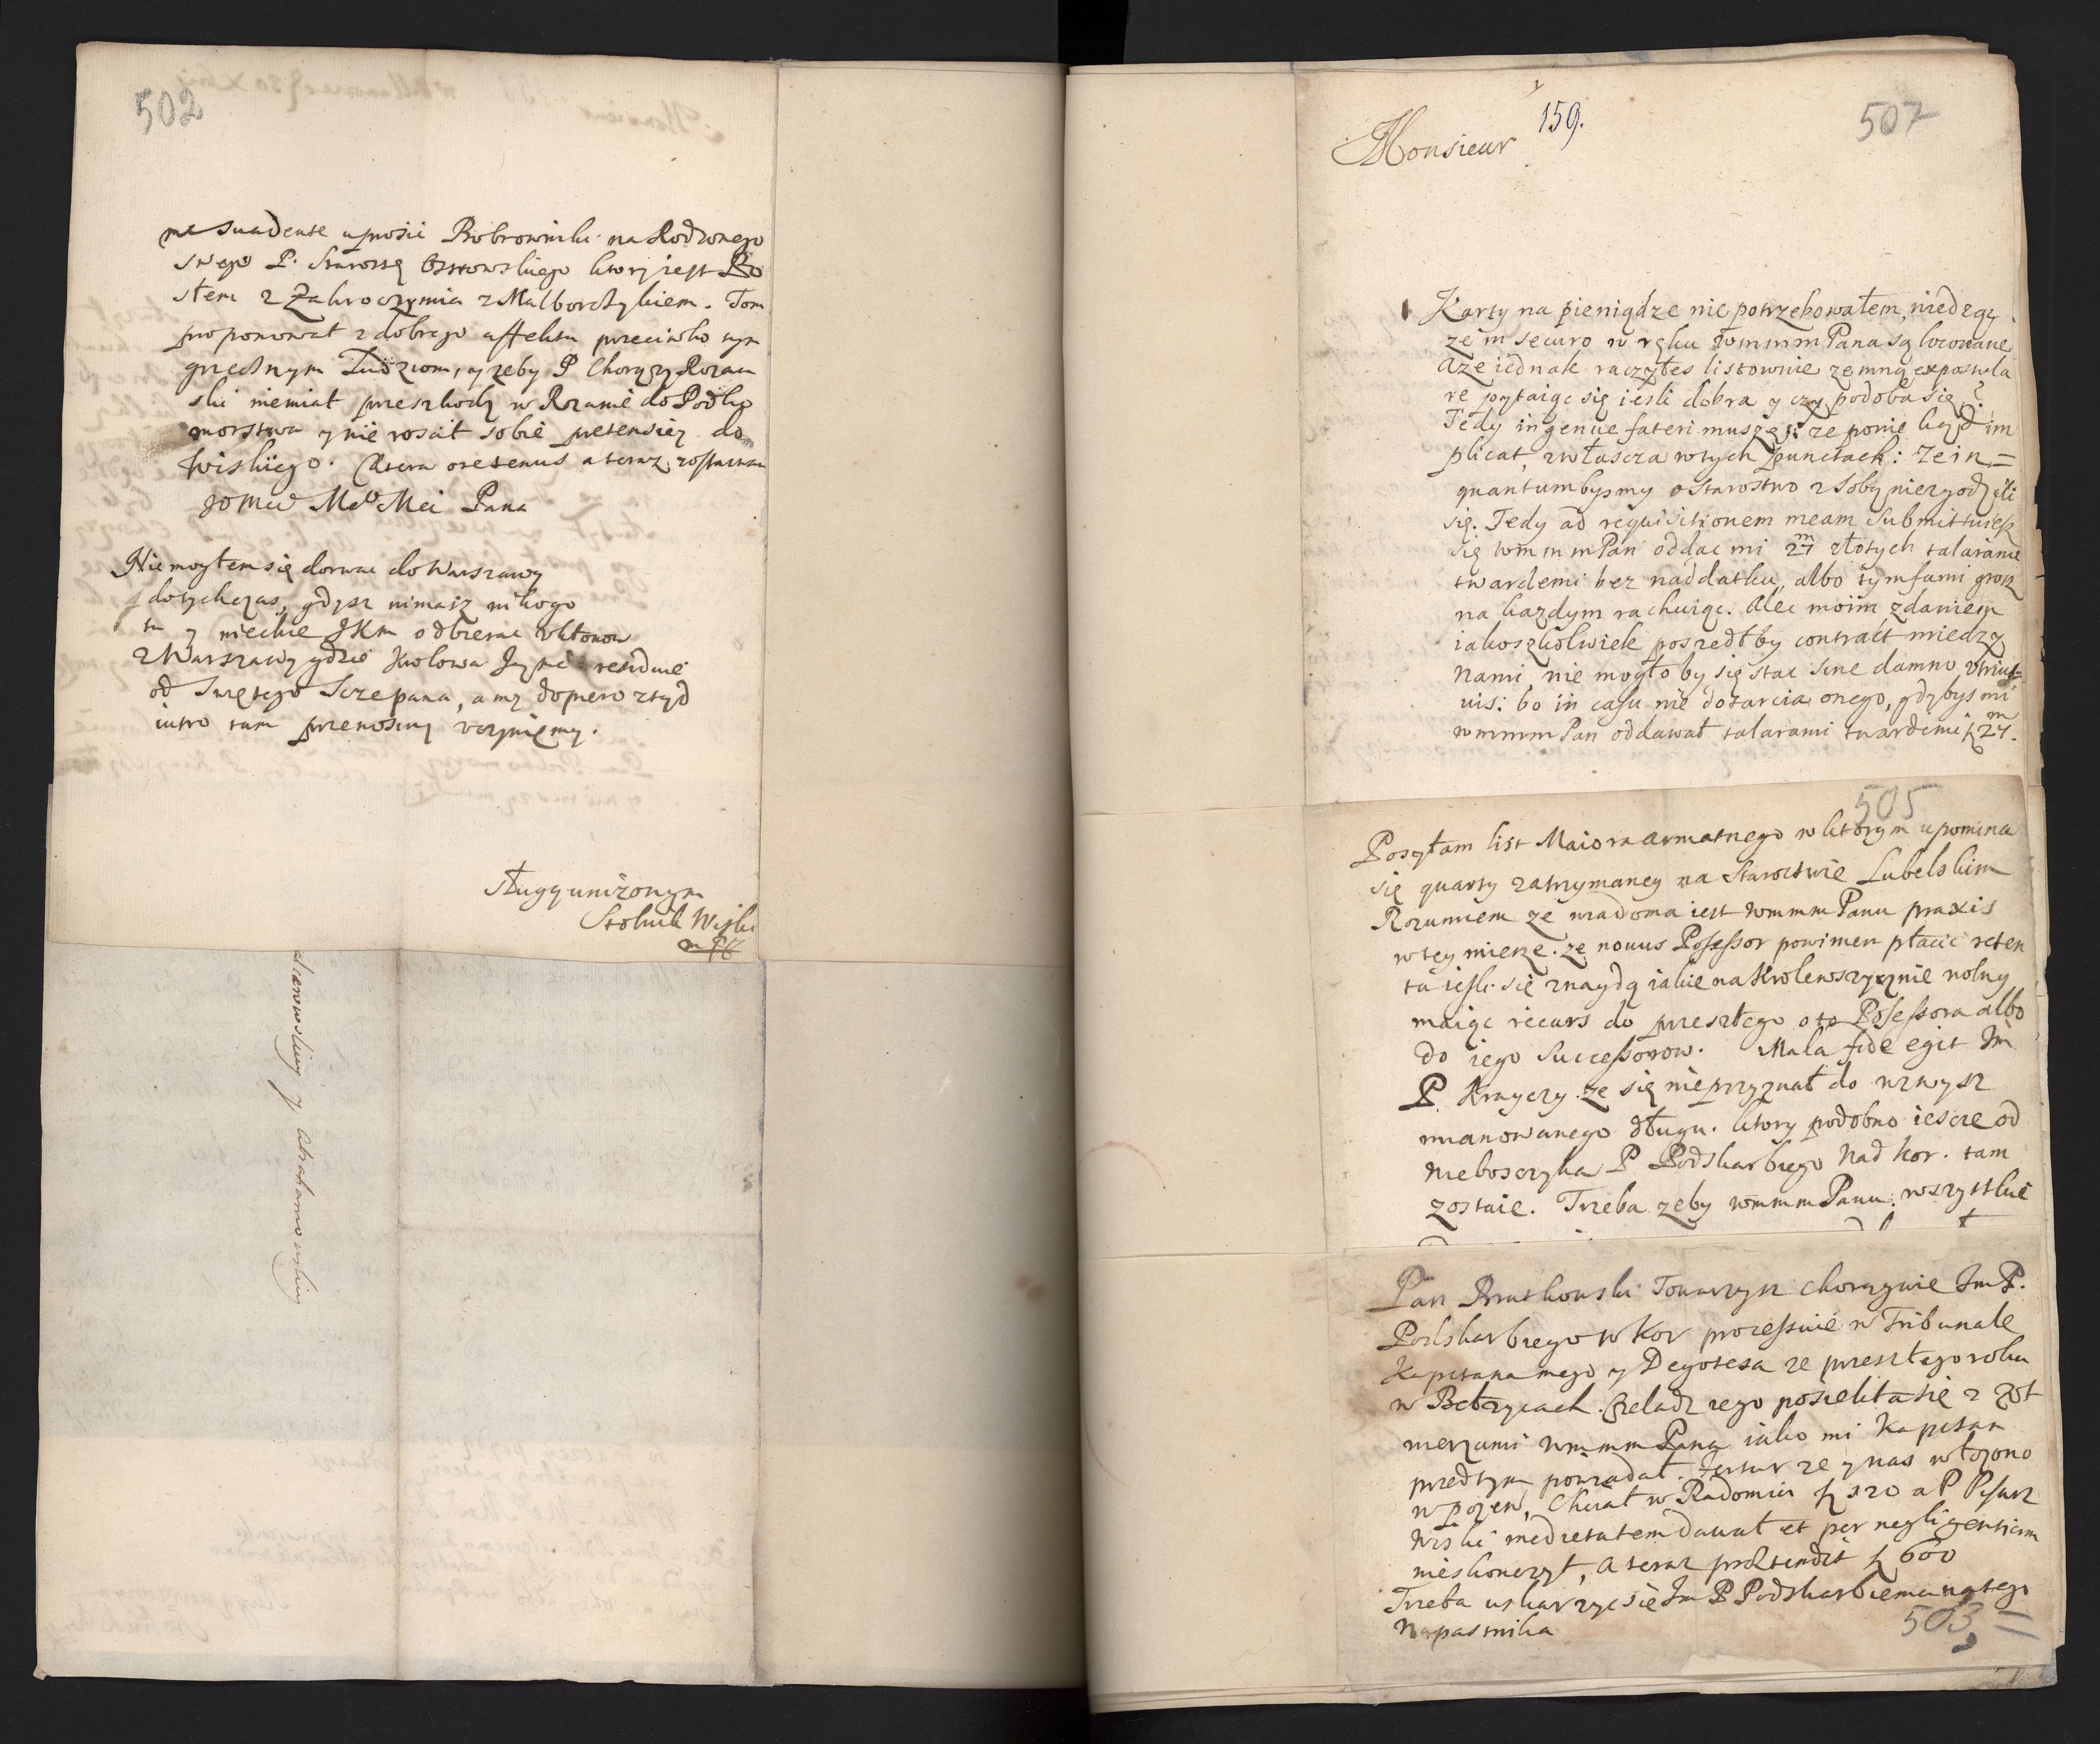 502
me suadente uprosic Bobrowniki na Rodzonego
swego P. Starostę Ostrowskiego ktory iest Po
słem z Zakroczymia z Malborczykiem. Tom
proponował z dobrego affektu przeciwko tym
grzecznym Ludziom, y zeby P Chorązy Rozan
ski niemiał przeszkody w Rozanie do Podko
morstwa y nie roscił sobie pretensiey do
Wiskiego. Cætera oretenus a teraz zostawam
JoMci Mo Mci Pana
Nie mogłem się dorwac do Warszawy
dotychczas, gdysz nimasz nikogo
tu y niechce JKM odbierac uktonow
z Warszawy gdzie Krolowa Jeymć residuie
od Swiętego Sczepana, a my dopiero ztąd
iutro tam przenosiny uczynięmy.
sługą unizonym
Stolnik Wiski
mpp
Sieniawskiey y Chatomskiey
159.
507
Monsieur
Karty na pieniądze nie potrzebowałem, wiedząc
ze in securo w ręku wmmm Pana są locowane
Aze iednak raczyłes listownie zemną expostula
re pytaiąc się iesli dobra y czy podoba się?
Tedy ingenue fateri muszę: ze ponię kąd im
plicat, zwłascza w tych punctach: ze in=
quantum bysmy o starostwo z sobą niezgodzili
się. Tedy ad requisitionem meam submittuiesz
się wmmm Pan oddac mi 27 m złotych talarami
twardemi bez naddatku, albo tymfami grosz
na kazdym rachuiąc. Alec moim zdaniem
iakoszkolwiek poszedłby contract miedzy
nami, nie mogło by się stac sine damno utrius=
uis: bo in casu nie dotarcia onego, gdybys mi
wmmm Pan oddawał talarami twardemi 27 m.
505
Posyłam list Maiora armatnego w ktorym upomina
się quarty zatrzymaney na Starostwie Lubelskim
Rozumiem ze wiadoma iest wmmm Panu praxis
w tey mierze. ze nouus Possessor powinien płacic reten
ta iesli się znaydą iakie na Krolewszczyznie wolny
maiąc recurs do przeszłego o to Possessora albo
do iego Successorow. Mala fide egit Jm
P. Krayczy ze się nieprzyznał do wzwysz
mianowanego długu. ktory podobno iescze od
nieboszczyka P Podskarbiego Nad kor. tam
zostaie. Trzeba zeby wmmm Panu wszystkie
Pan Rutkowski Towarzysz chorągwie Jm P.
Podskarbiego W Kor processuie w Tribunale
Kapitana mego y Degotesa ze przeszłego roku
w Bełzycach. Czeladz iego posiekła się z zoł
nierzami wmmm Pana iako mi Kapitan
przedtym powiadał. Fertur ze y nas włozono
w pozew, Chciał w Radomiu 320 a P Pisarz
Wiski medietatem dawał et per negligentiam
nieskonczył, a teraz prætendit 600
Trzeba uskarzyc się Jm P Podskarbiemu na tego
Napastnika
503